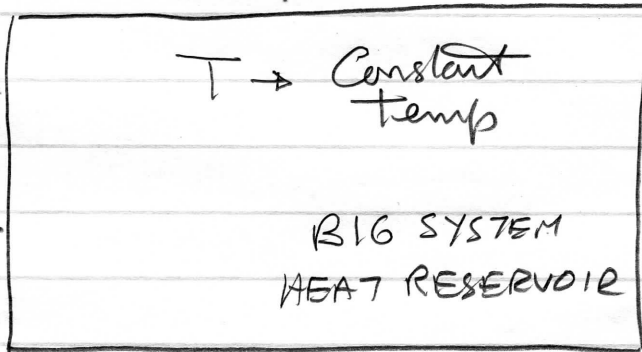 T → Constant
temp
BIG SYSTEM
HEAT RESERVOIR